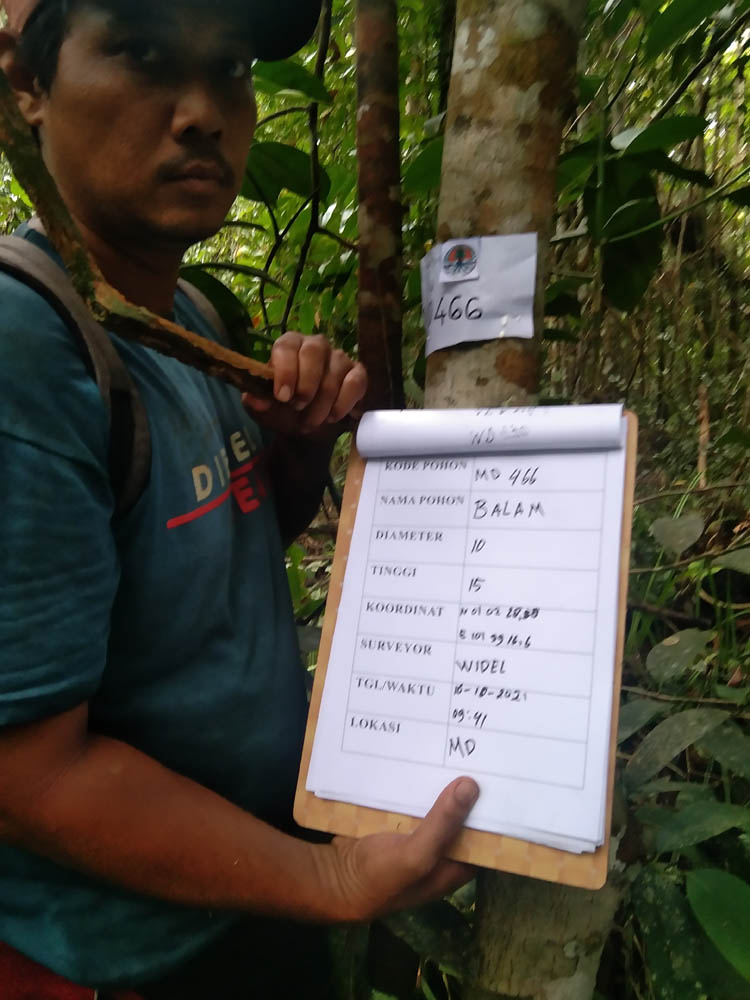 466
KODE POHON MD 466
NAMA POHON BALAM
DIAMETER 10
TINGGI 15
KOORDINAT N 01 02
E 101 99 16.6
SURVEYOR WIDEL
TGL/WAKTU 16-10-2021
09:41
LOKASI MD